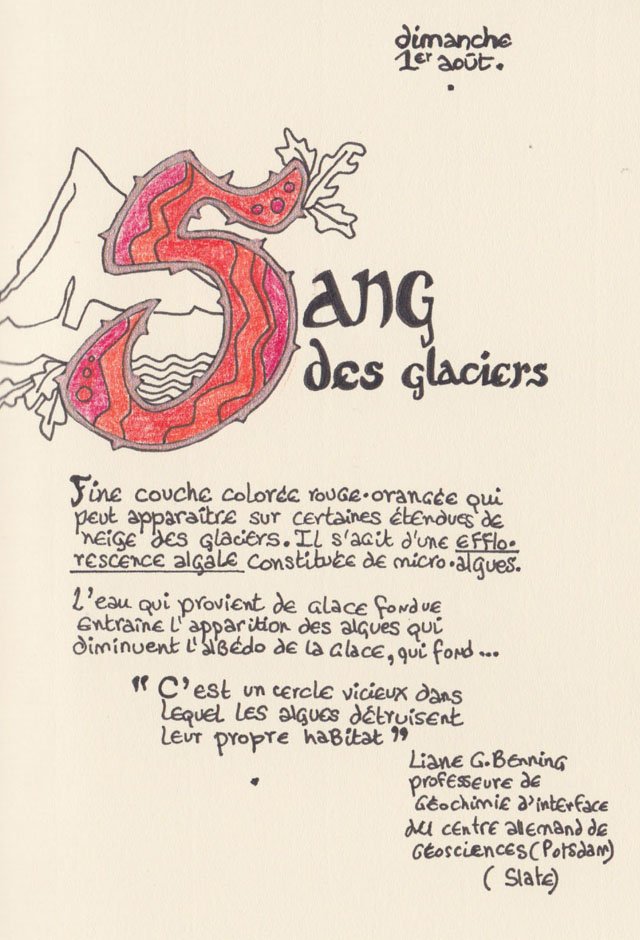 dimanche
1er août.
Sang
des glaciers
Fine couche colorée rouge-orangée qui
peut apparaître sur certaines étendues de
neige des glaciers. Il s'agit d'une efflo-
rescence algale constituée de micro-algues.
L'eau qui provient de glace fondue
entraîne l'apparition des algues qui
diminuent l'albédo de la glace, qui fond...
" C'est un cercle vicieux dans
lequel les algues détruisent
leur propre habitat "
Liane G. Benning
professeure de
Géochimie d'interface
du centre allemand de
Géosciences (Potsdam)
( Slate)